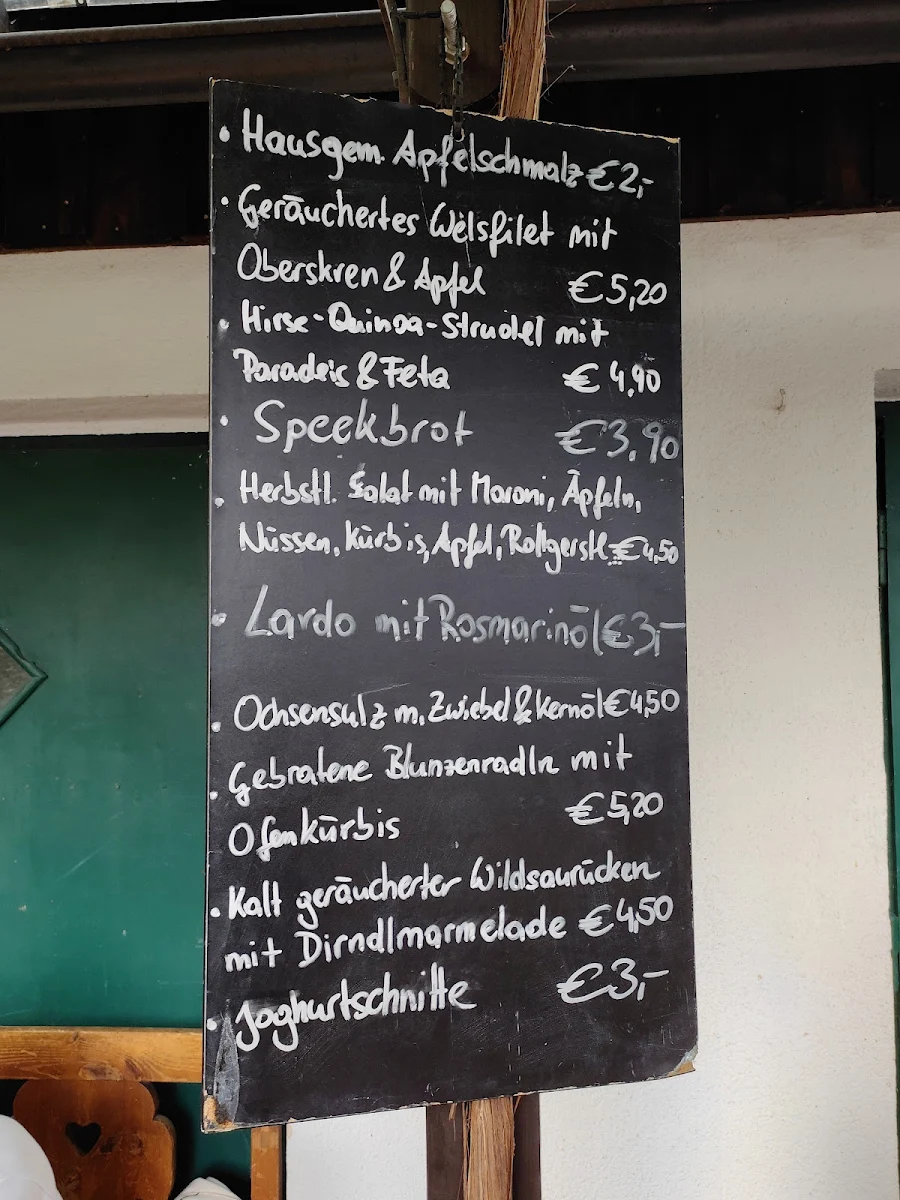 • Hausgem. Apfelschmalz € 2,-
• Geräuchertes Welsfilet mit
Oberskren & Apfel € 5,20
• Hirse-Quinoa-Strudel mit
Paradeis & Feta € 4,90
• Speckbrot € 3,90
• Herbstl. Salat mit Maroni, Äpfeln,
Nüssen, Kürbis, Apfel, Rollgerstl € 4,50
• Lardo mit Rosmarinöl € 3,-
• Ochsensulz m. Zwiebel & Kernöl € 4,50
• Gebratene Blunzenradln mit
Ofenkürbis € 5,20
• Kalt geräucherter Wildsaurücken
mit Dirndlmarmelade € 4,50
• Joghurtschnitte € 3,-